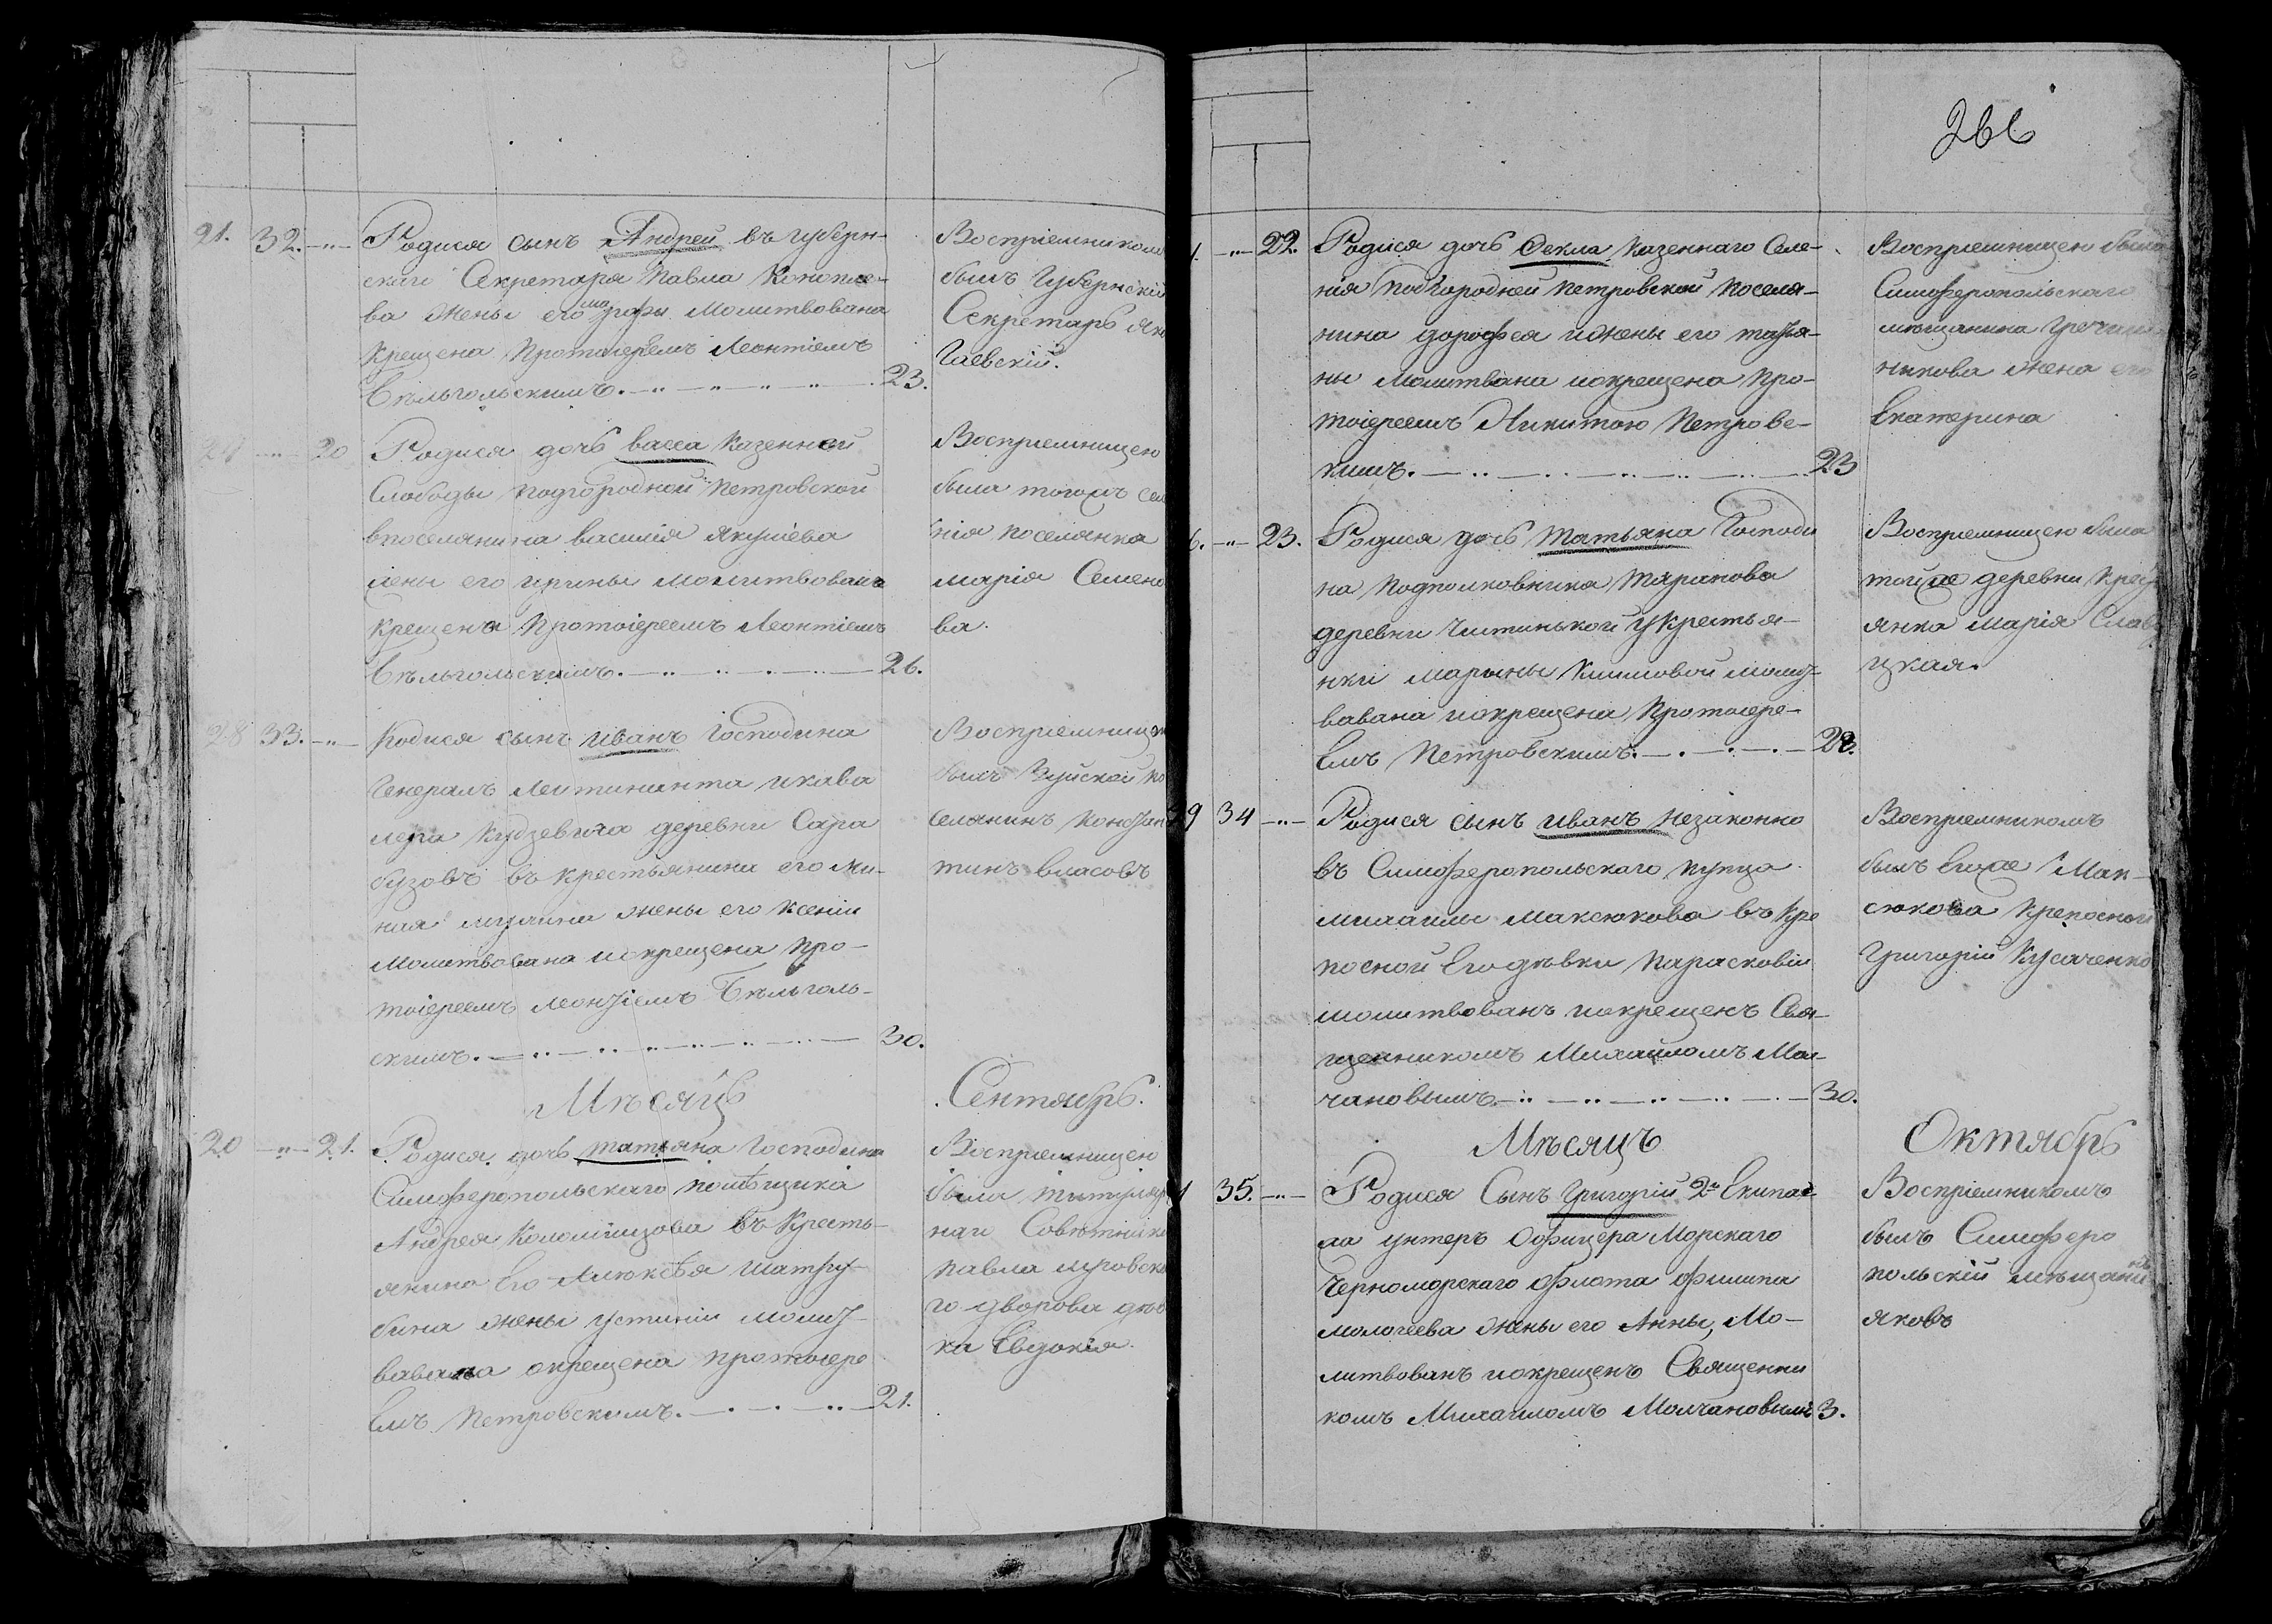 21. 32. Родися сынъ Андрей въ губерн-
скаго Секретаря Павла Конопле-
ва жены его Марфы Молитвована
крещена протоіереемъ Леонтіемъ
Бѣльгольскимъ. 23.
Воспріемникомъ
былъ Губернскій
Секретарь
Гаевскій.
20 Родися дочь васса казенной
Слободы подгородной петровской
впоселянина василія Якушева
жены его ирины молитвована
крещена протоіереемъ Леонтіемъ
Бѣльгольскимъ. 26.
Воспріемницею
была тогожъ сел
нія поселянка
марія Семено
ва.
28 33. Родися сынъ иванъ Господина
Генералъ Лейтинанта икава
лера Кудзевича деревни Сара
бузовъ въ крестьянина его Ми-
ная жены его ксеніи
молитвована икрещена про-
тоіереемъ леонтіемъ Бѣльголь-
скимъ. 30.
Воспріемницею
былъ Зуйской по
селянинъ констан
тинъ власовъ
Мѣсяцъ Сентябрь.
20 21. Родися дочь татьяна Господина
Симферопольскаго помѣщика
Андрея Коломійцова въ кресть-
янина Его Алексѣя шатру-
бина жены устиніи молит-
вавана окрещена протоіере
емъ петровскимъ. 21.
Воспріемницею
была титуляр
наго Совѣтника
павла
го дворова дѣв
ка Евдокія.
266
22. Родися дочь Фекла казеннаго Селе-
нія подгородней петровской поселя-
нина дорофея ижены его татья-
ны молитвана икрещена про-
тоіереемъ Никитою Петровс-
кимъ. 23
Воспріемницею была
Симферопольскаго
мѣщанина
жена его
Екатерина
23. Родися дочь татьяна Господи
на подполковника Таранова
деревни Чистинькой укрестья-
нки марины Климовой молит-
вавана икрещена протоіере-
емъ петровскимъ. 28.
Воспріемницею была
тойже деревни крест
янка марія Слав
цкая.
29 34 Родися сынъ иванъ незаконно
въ Симферопольскаго купца
михаила максюкова въ кре
посной Егодѣвки парасковіи
молитвованъ икрещенъ Свя-
щенникомъ Михаиломъ Мол-
чановымъ. 30.
Воспріемникомъ
былъ Егоже Мак-
сюкова крепосной
Григорій Кусаченко
Мѣсяцъ Октябрь
35. Родися Сынъ Григорій 2го Екипаж-
аа унтеръ Офицера Морскаго
Черноморскаго флота филипа
мологеева жены его Анны, Мо-
литвованъ икрещенъ Священни
комъ Михаиломъ Молчановымъ 3.
Воспріемникомъ
былъ Симферо
польскій мѣщанинъ
яковъ